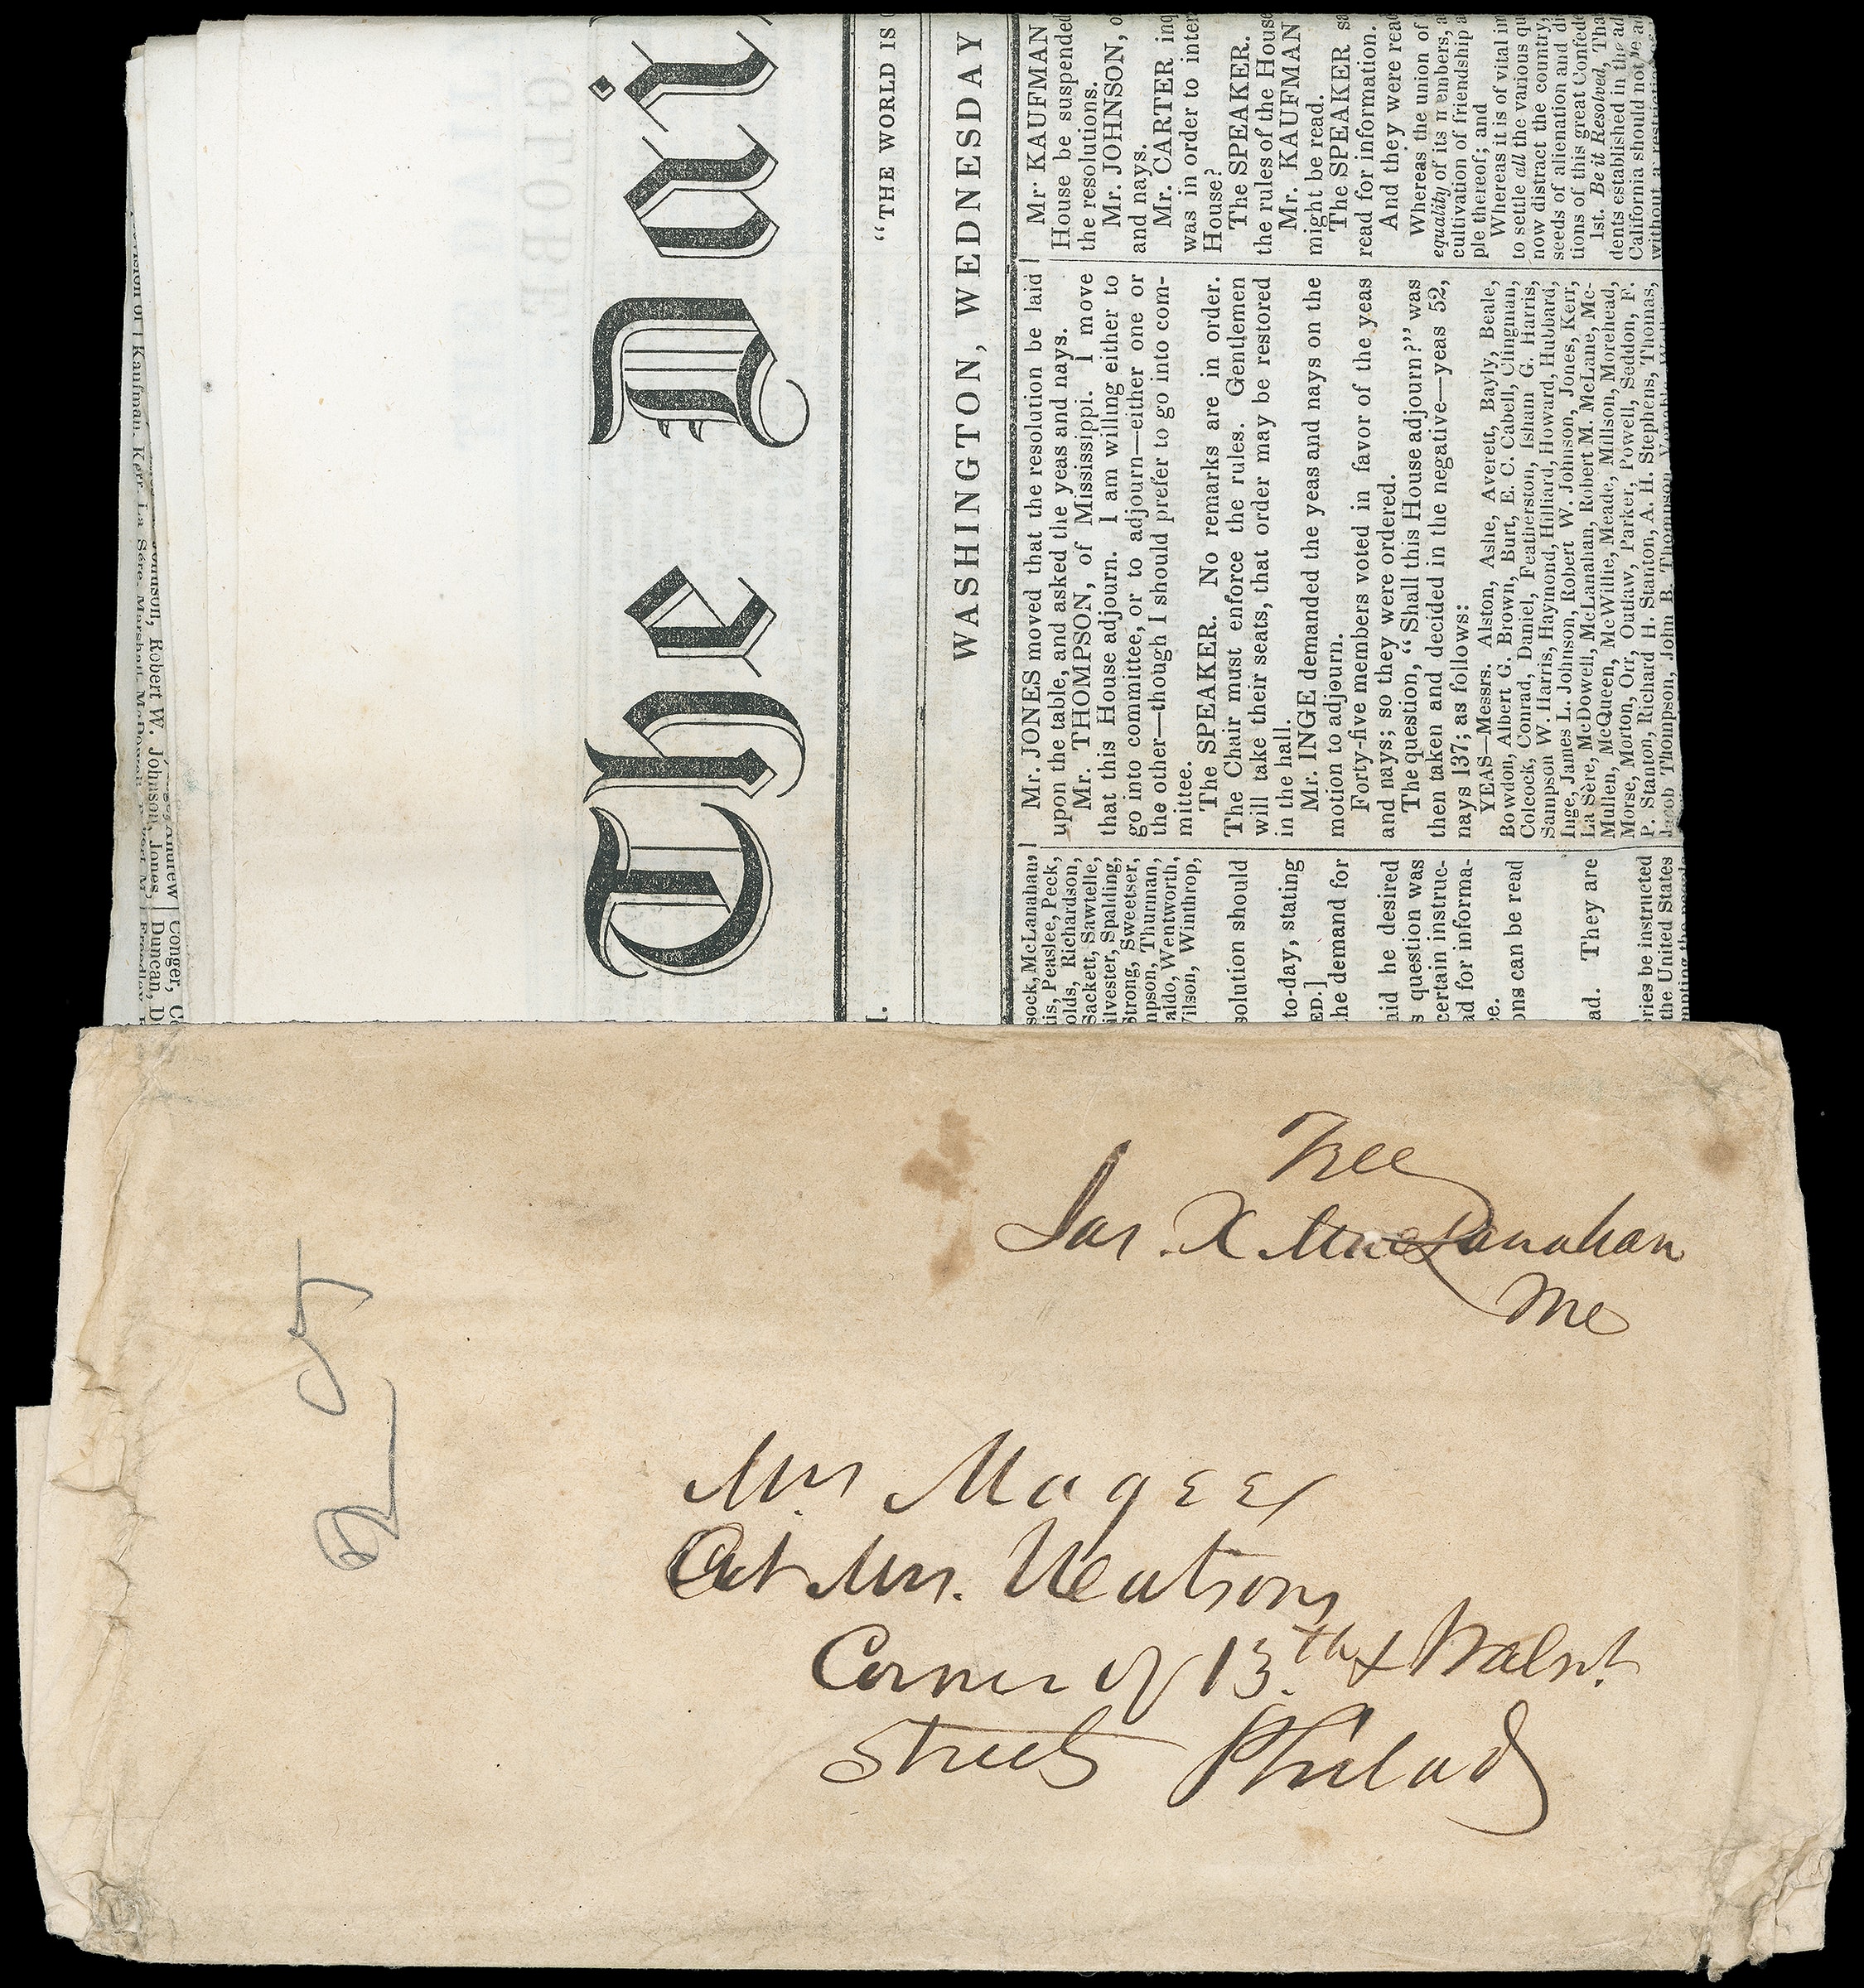 The Dai
"THE WORLD IS
WASHINGTON, WEDNESDAY
sock, McLanahan,
tis, Peaslee, Peck,
olds, Richardson,
Sackett, Sawtelle,
ilvester, Spalding,
Strong, Sweetser,
npson, Thurman,
aldo, Wentworth,
Vilson, Winthrop,
solution should
to-day, stating
ED.]
he demand for
aid he desired
s question was
certain instruc-
ad for informa-
ce.
ons can be read
ad. They are
ries be instructed
the United States
Mr. JONES moved that the resolution be laid
upon the table, and asked the yeas and nays.
Mr. THOMPSON, of Mississippi. I move
that this House adjourn. I am willing either to
go into committee, or to adjourn—either one or
the other—though I should prefer to go into com-
mittee.
The SPEAKER. No remarks are in order.
The Chair must enforce the rules. Gentlemen
will take their seats, that order may be restored
in the hall.
Mr. INGE demanded the yeas and nays on the
motion to adjourn.
Forty-five members voted in favor of the yeas
and nays; so they were ordered.
The question, "Shall this House adjourn?" was
then taken and decided in the negative—yeas 52,
nays 137; as follows:
YEAS—Messrs. Alston, Ashe, Averett, Bayly, Beale,
Bowdon, Albert G. Brown, Burt, E. C. Cabell, Clingman,
Colcock, Conrad, Daniel, Featherston, Isham G. Harris,
Sampson W. Harris, Haymond, Hilliard, Howard, Hubbard,
Inge, James L. Johnson, Robert W. Johnson, Jones, Kerr,
La Sère, McDowell, McLanahan, Robert M. McLane, Mc-
Mullen, McQueen, McWillie, Meade, Millson, Morehead,
Morse, Morton, Orr, Outlaw, Parker, Powell, Seddon, F.
P. Stanton, Richard H. Stanton, A. H. Stephens, Thomas,
Jacob Thompson, John B. Thompson, Venable,
Mr. KAUFMAN
House be suspended
the resolutions.
Mr. JOHNSON, o
and nays.
Mr. CARTER inq
was in order to inter
House?
The SPEAKER.
the rules of the House
Mr. KAUFMAN
might be read.
The SPEAKER sa
read for information.
And they were read
Whereas the union of
equality of its members, a
cultivation of friendship a
ple thereof; and
Whereas it is of vital im
to settle all the various qu
now distract the country,
seeds of alienation and di
tions of this great Confede
1st. Be it Resolved, Tha
dents established in the ad
California should not be ad
without a restriction
Kaufman, Kerr, La Sére, Marshall,
Johnson, Robert W. Johnson, Jones,
Andrew
Conger, C
Duncan, D
Freedley
Free
Jas. X MacLanahan
MC
25
Mrs Magee
At Mrs. Neatsons
Corner of 13th & Walnt.
Streets Philad